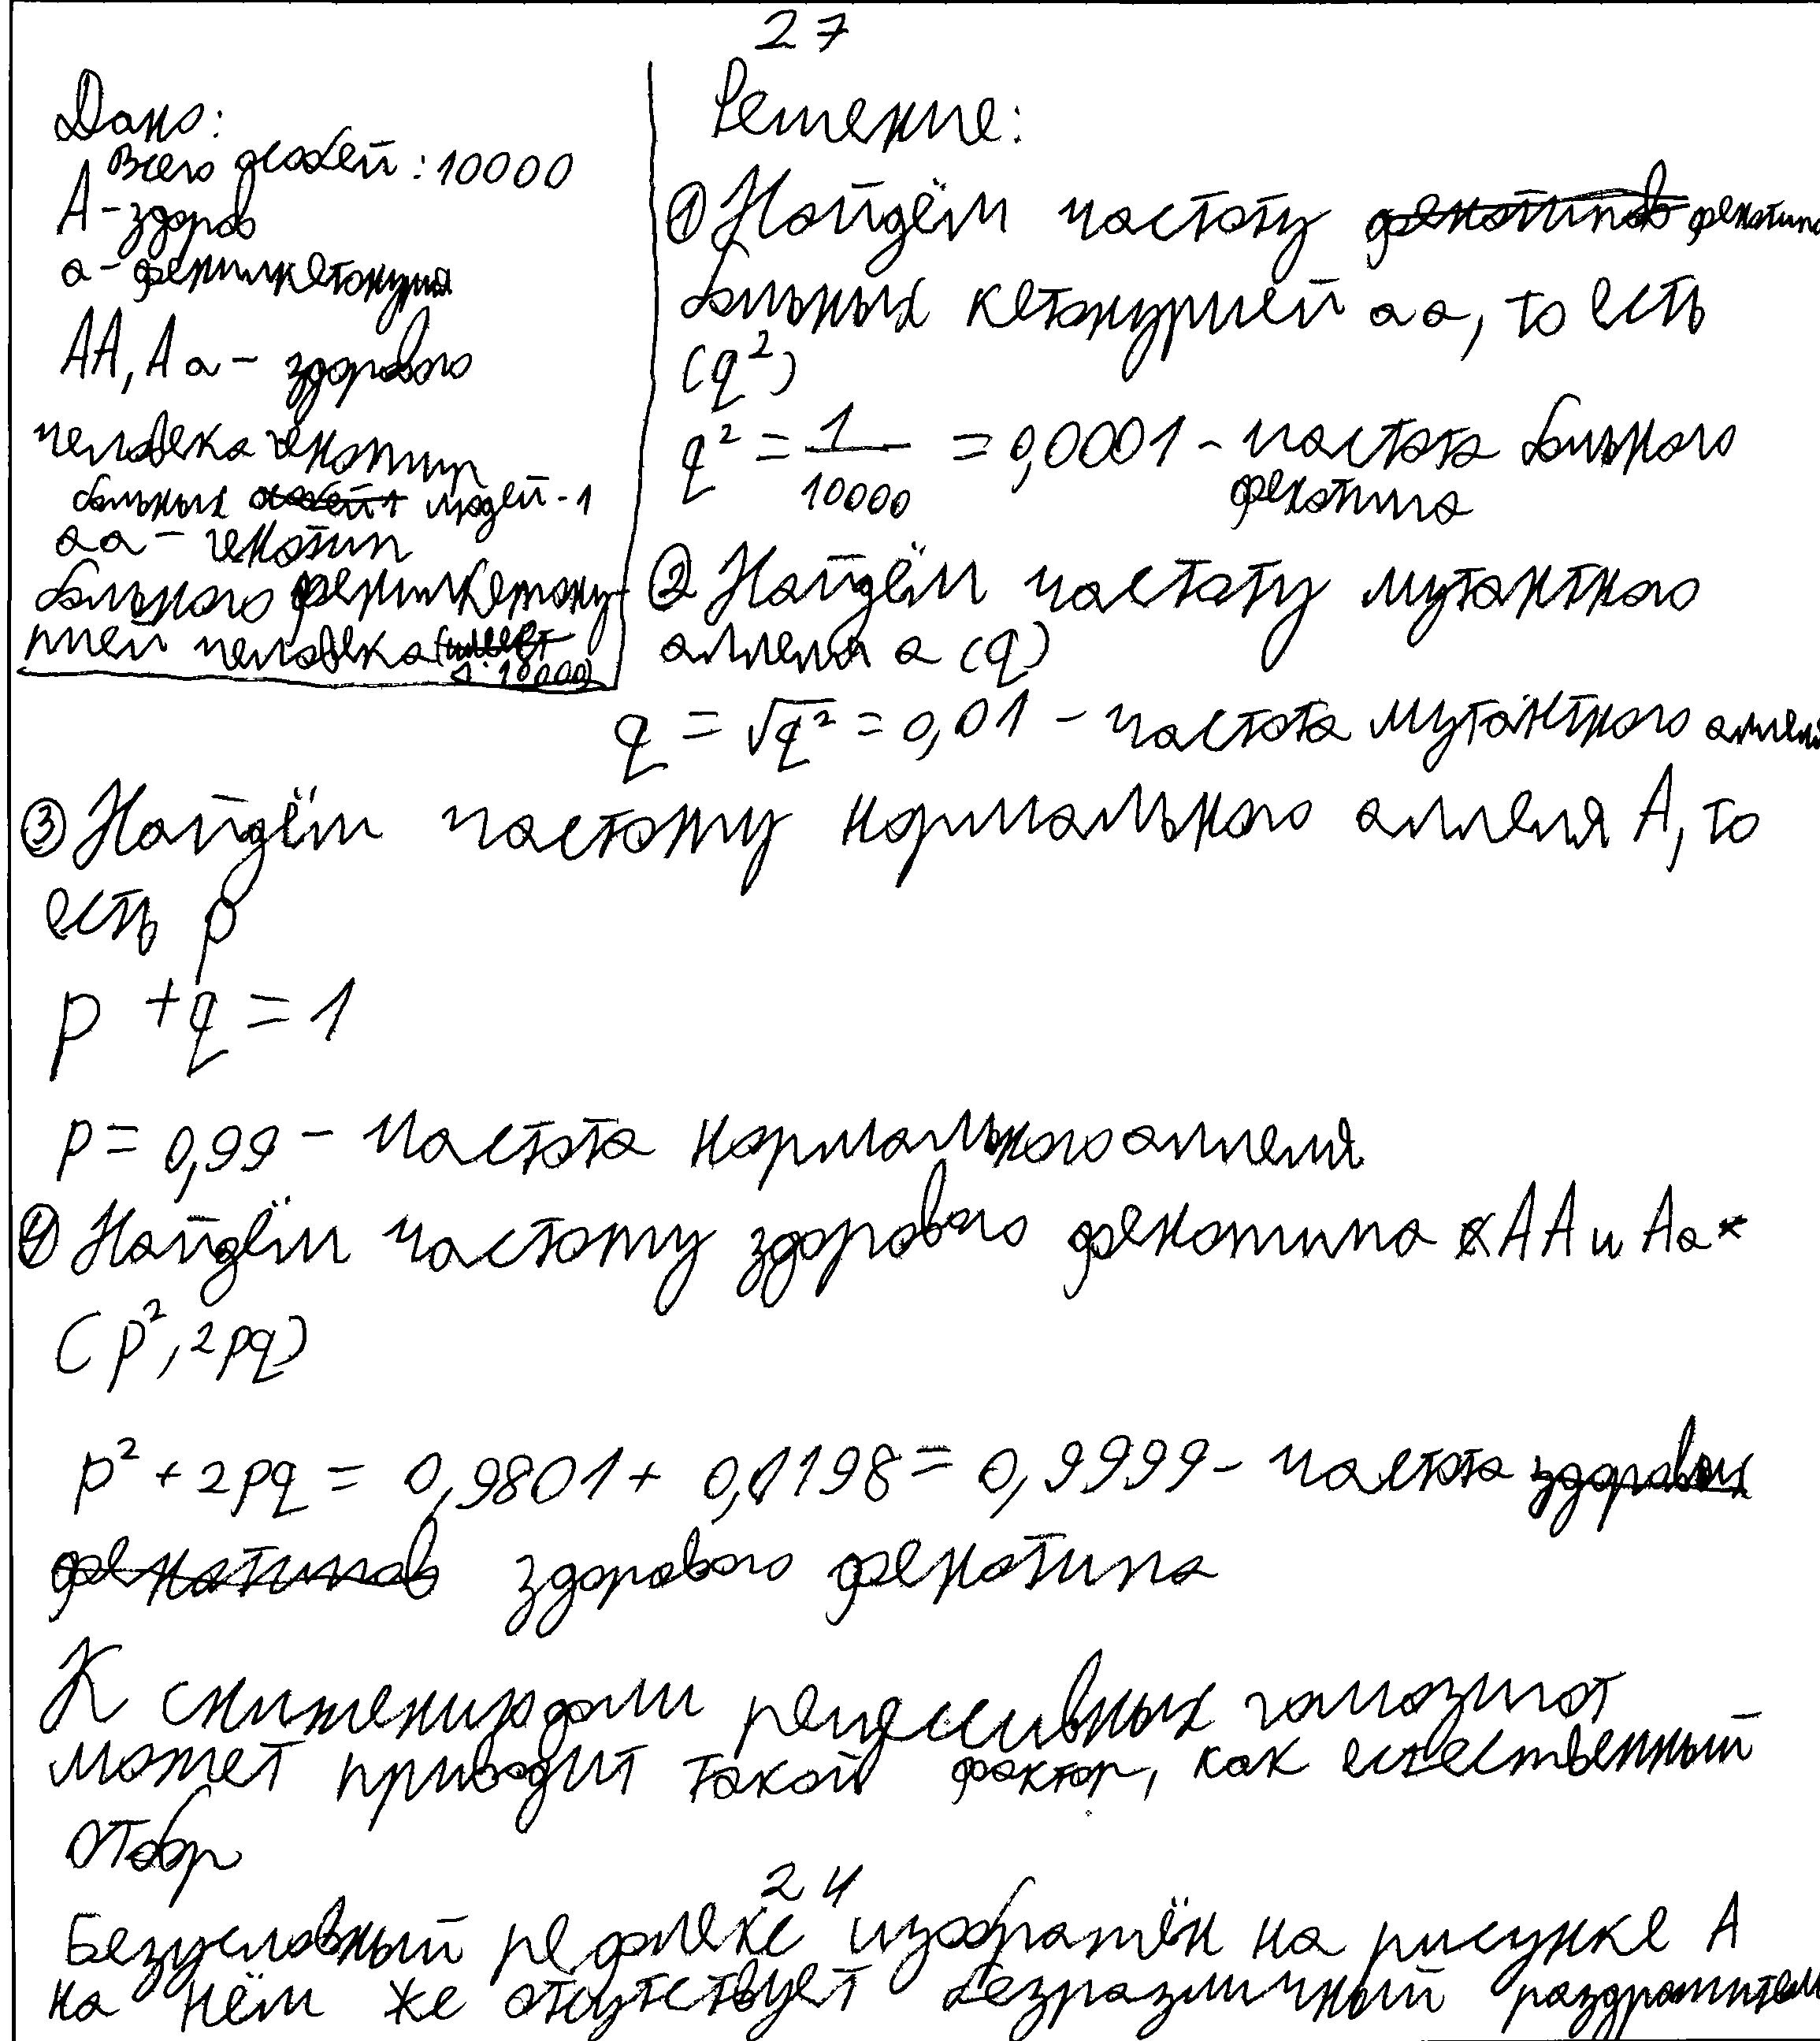 27
Дано:
Всего особей: 10000
А - здоров
а - фенилкетонурия
АА, Аа - здорового
человека генотип
больных людей - 1
аа - генотип
больного фенилкетону-
рией человека
1:10000)
Решение:
① Найдём частоту фенотипов фенотипа
больных кетонурией аа, то есть
(q²)
q² = 1/10000 = 0,0001 - частота больного
фенотипа
② Найдём частоту мутантного
аллеля а (q)
q = √q² = 0,01 - частота мутантного аллеля
③ Найдём частоту нормального аллеля А, то
есть p
p + q = 1
p = 0,99 - частота нормального аллеля
④ Найдём частоту здорового фенотипа АА и Аа
(p², 2pq)
p² + 2pq = 0,9801 + 0,0198 = 0,9999 - частота здоровых
фенотипов здорового фенотипа
К снижению доли рецессивных гомозигот
может приводит такой фактор, как естественный
отбор
24
Безусловный рефлекс изображён на рисунке А
на нём же отсутствует безразличный раздражитель